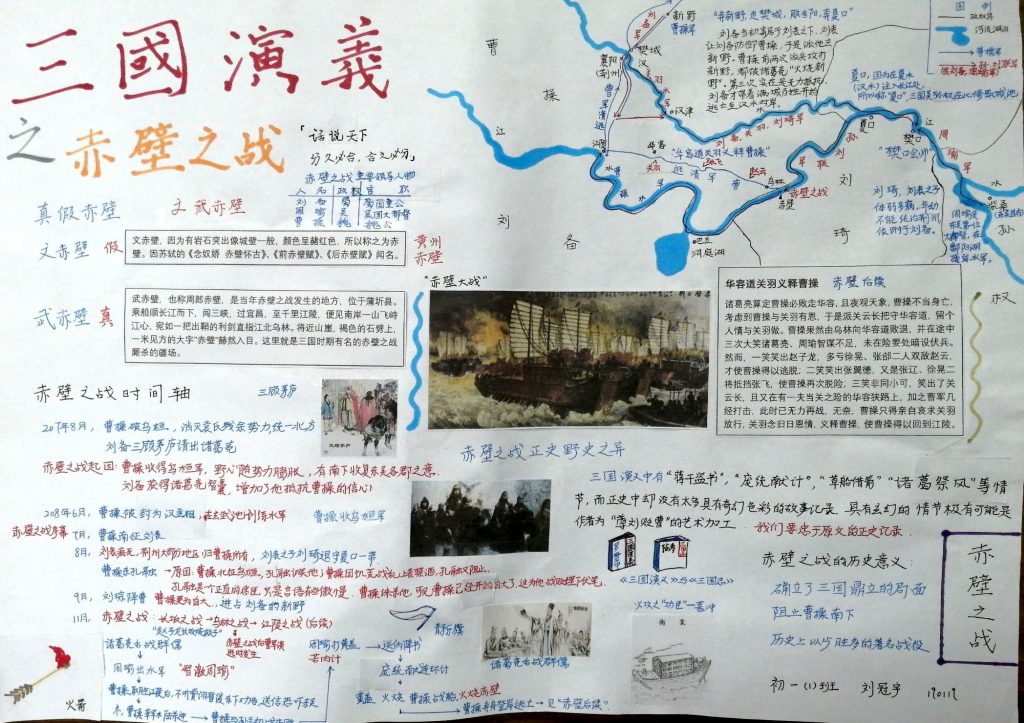 三國演義
之赤壁之战
「话说天下
分久必合，合久必分」
赤壁之战主要领导人物
人名 政权 官职
刘备 蜀 蜀国皇公
周瑜 吴 吴国大都督
曹操 魏 魏公
真假赤壁 文武赤壁
文赤壁 假
文赤壁，因为有岩石突出像城壁一般，颜色呈赭红色，所以称之为赤
壁。因苏轼的《念奴娇 赤壁怀古》、《前赤壁赋》、《后赤壁赋》闻名。
黄州
赤壁
武赤壁 真
武赤壁，也称周郎赤壁，是当年赤壁之战发生的地方，位于蒲圻县。
乘船顺长江而下，闯三峡，过宜昌，至千里江陵，便见南岸一山飞峙
江心，宛如一把出鞘的利剑直指江北乌林。将近山崖，褐色的石劈上，
一米见方的大字“赤壁”赫然入目。这里就是三国时期有名的赤壁之战
鏖杀的疆场。
赤壁之战时间轴 三顾茅庐
207年8月，曹操破乌桓，消灭袁氏残余势力，统一北方
刘备三顾茅庐请出诸葛亮
赤壁之战起因：曹操收得乌桓军，野心随势力膨胀，有南下收复东吴各郡之意。
刘备获得诸葛亮智囊，增加了他抵抗曹操的信心
208年6月，曹操被封为汉丞相，在玄武池训练水军 曹操收乌桓军
赤壁之战序幕 7月，曹操南征刘表。
8月，刘表病死，荆州大部分地区归曹操所有，刘表之子刘琦退守夏口一带
曹操杀孔融 →原因：曹操北征乌桓，孔融讥笑他；曹操因饥荒战乱上表禁酒，孔融又阻止。
孔融是个正直的忠臣，只是言语有些傲慢，曹操抹杀他，可见曹操已经开始自大了，这为他战败埋下伏笔。
9月，刘琮降曹 曹操更为自大，进占刘备的新野
11月，赤壁之战：长坂之战→乌林之战→江陵之战(后续)
“赵子龙长坂坡救子”
诸葛亮舌战群儒
周瑜出水军 “智激周瑜”
周瑜打黄盖
苦肉计
→送诈降书
庞统献连环计
黄盖 火烧 曹操战船 火烧赤壁
曹操弃舟登岸逃亡→见“赤壁后续”
青龙旗
火箭
曹
操
江
刘
备
新野
曹操军
樊城
襄阳
(荆州)
汉津
夏口
樊口
乌林
赤壁
巴丘
洞庭湖
柴桑
刘
琦
孙
权
图例
河流湖泊
曹操军
孙刘联军
“弃新野，走樊城，败当阳，奔夏口”
刘备当初寄居于刘表之下，刘表
让刘备防御曹操，于是派他去
新野。曹操前两次派兵攻打
新野，都被诸葛亮“火烧新
野”。第三次实在是无力抵抗，
刘备才带着满城百姓开始
逃亡至汉水对岸。
夏口，因为在夏水
(汉水)注入长江处，
所以称“夏口”，三国吴孙权在此修筑城池
“华容道关羽义释曹操”
“樊口会师”
刘琦，刘表之子
体弱多病，年幼
不能统治荆州
依附于刘备。
“赤壁大战”
华容道关羽义释曹操 赤壁后续
诸葛亮算定曹操必败走华容，且夜观天象，曹操不当身亡，
考虑到曹操与关羽有恩，于是派关云长把守华容道，留个
人情与关羽做。曹操果然由乌林向华容道败退，并在途中
三次大笑诸葛亮、周瑜智谋不足，未在险要处暗设伏兵。
然而，一笑笑出赵子龙，多亏徐晃、张郃二人双敌赵云，
才使曹操得以逃脱；二笑笑出张翼德，又是张辽、徐晃二
将抵挡张飞，使曹操再次脱险；三笑非同小可，笑出了关
云长，且又在有一夫当关之险的华容狭路上，加之曹军几
经打击，此时已无力再战，无奈，曹操只得亲自哀求关羽
放行，关羽念旧日恩情，义释曹操，使曹操得以回到江陵。
赤壁之战正史野史之异
三国演义中有“蒋干盗书”，“庞统献计”，“草船借箭”“诸葛祭风”等情
节，而正史中却没有太多具有奇幻色彩的故事记录。具有玄幻的情节极有可能是
作者为“尊刘贬曹”的艺术加工 我们要忠于原文的正史记录
《三国演义》与《三国志》
赤壁之战的历史意义：
确立了三国鼎立的局面
阻止曹操南下
历史上以少胜多的著名战役
火攻之“功臣”—艨冲
诸葛亮舌战群儒
赤
壁
之
战
初一(1)班 刘冠宇 170119